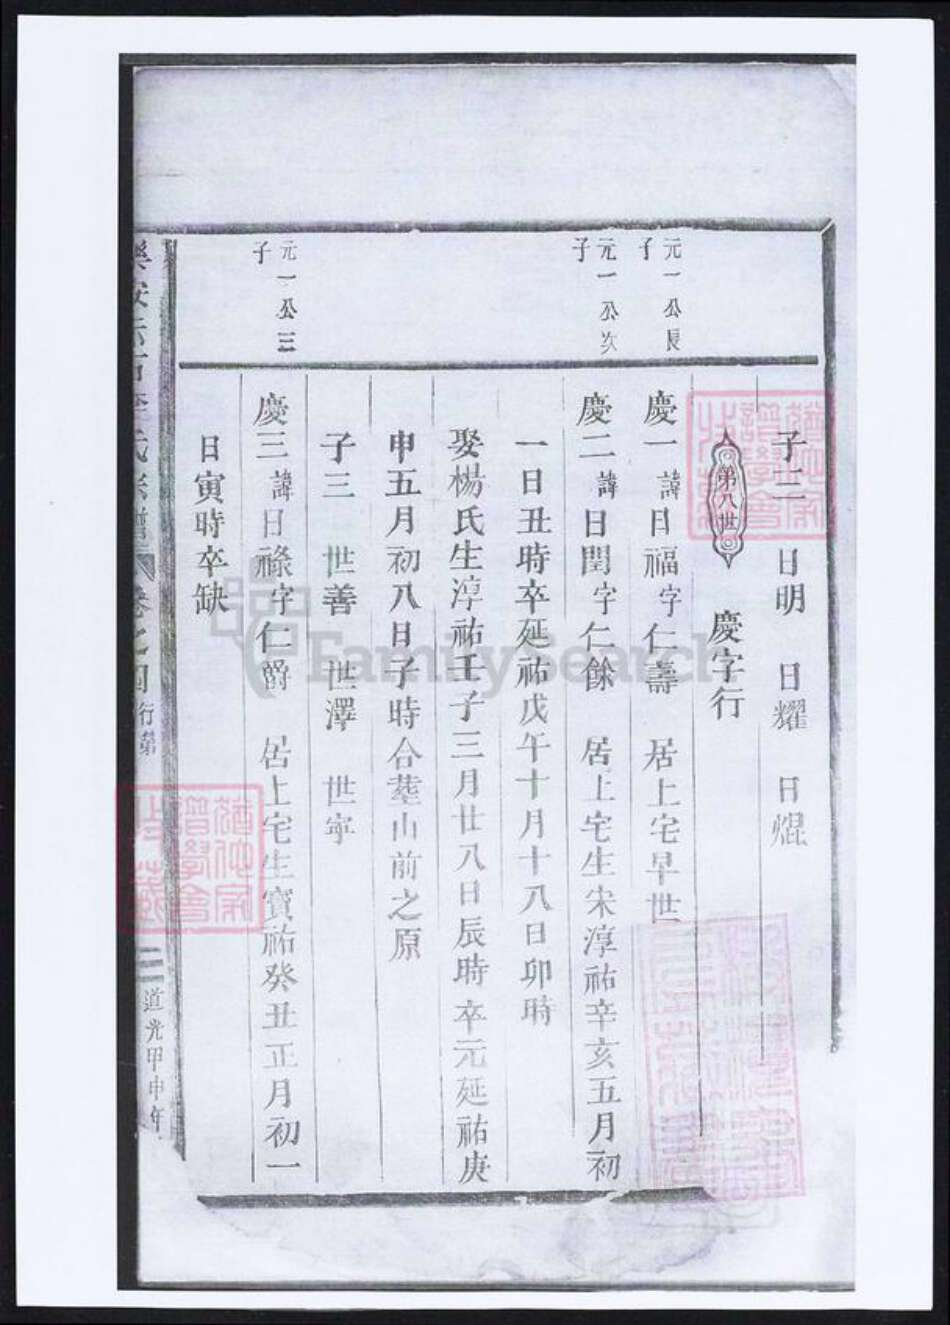 子三 日明 日耀 日焜
第八世 慶字行
元一公長子
慶一諱日福字仁壽 居上宅早世
元一公次子
慶二諱日閏字仁餘 居上宅生宋淳祐辛亥五月初
一日丑時卒延祐戊午十月十八日卯時
娶楊氏生淳祐壬子三月廿八日辰時卒元延祐庚
申五月初八日子時合塟山前之原
子三 世善 世澤 世寜
元一公三子
慶三諱日祿字仁爵 居上宅生寶祐癸丑正月初一
日寅時卒缺
卷之四 行第
三 道光甲申年
FamilySearch